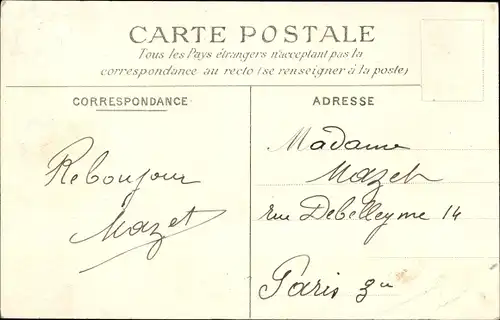 CARTE POSTALE
Tous les Pays étrangers n'acceptant pas la
correspondance au recto (se renseigner à la poste)
CORRESPONDANCE
ADRESSE
Rebonjour
Mazet
Madame
Mazet
rue Debelleyme 14
Paris 3e